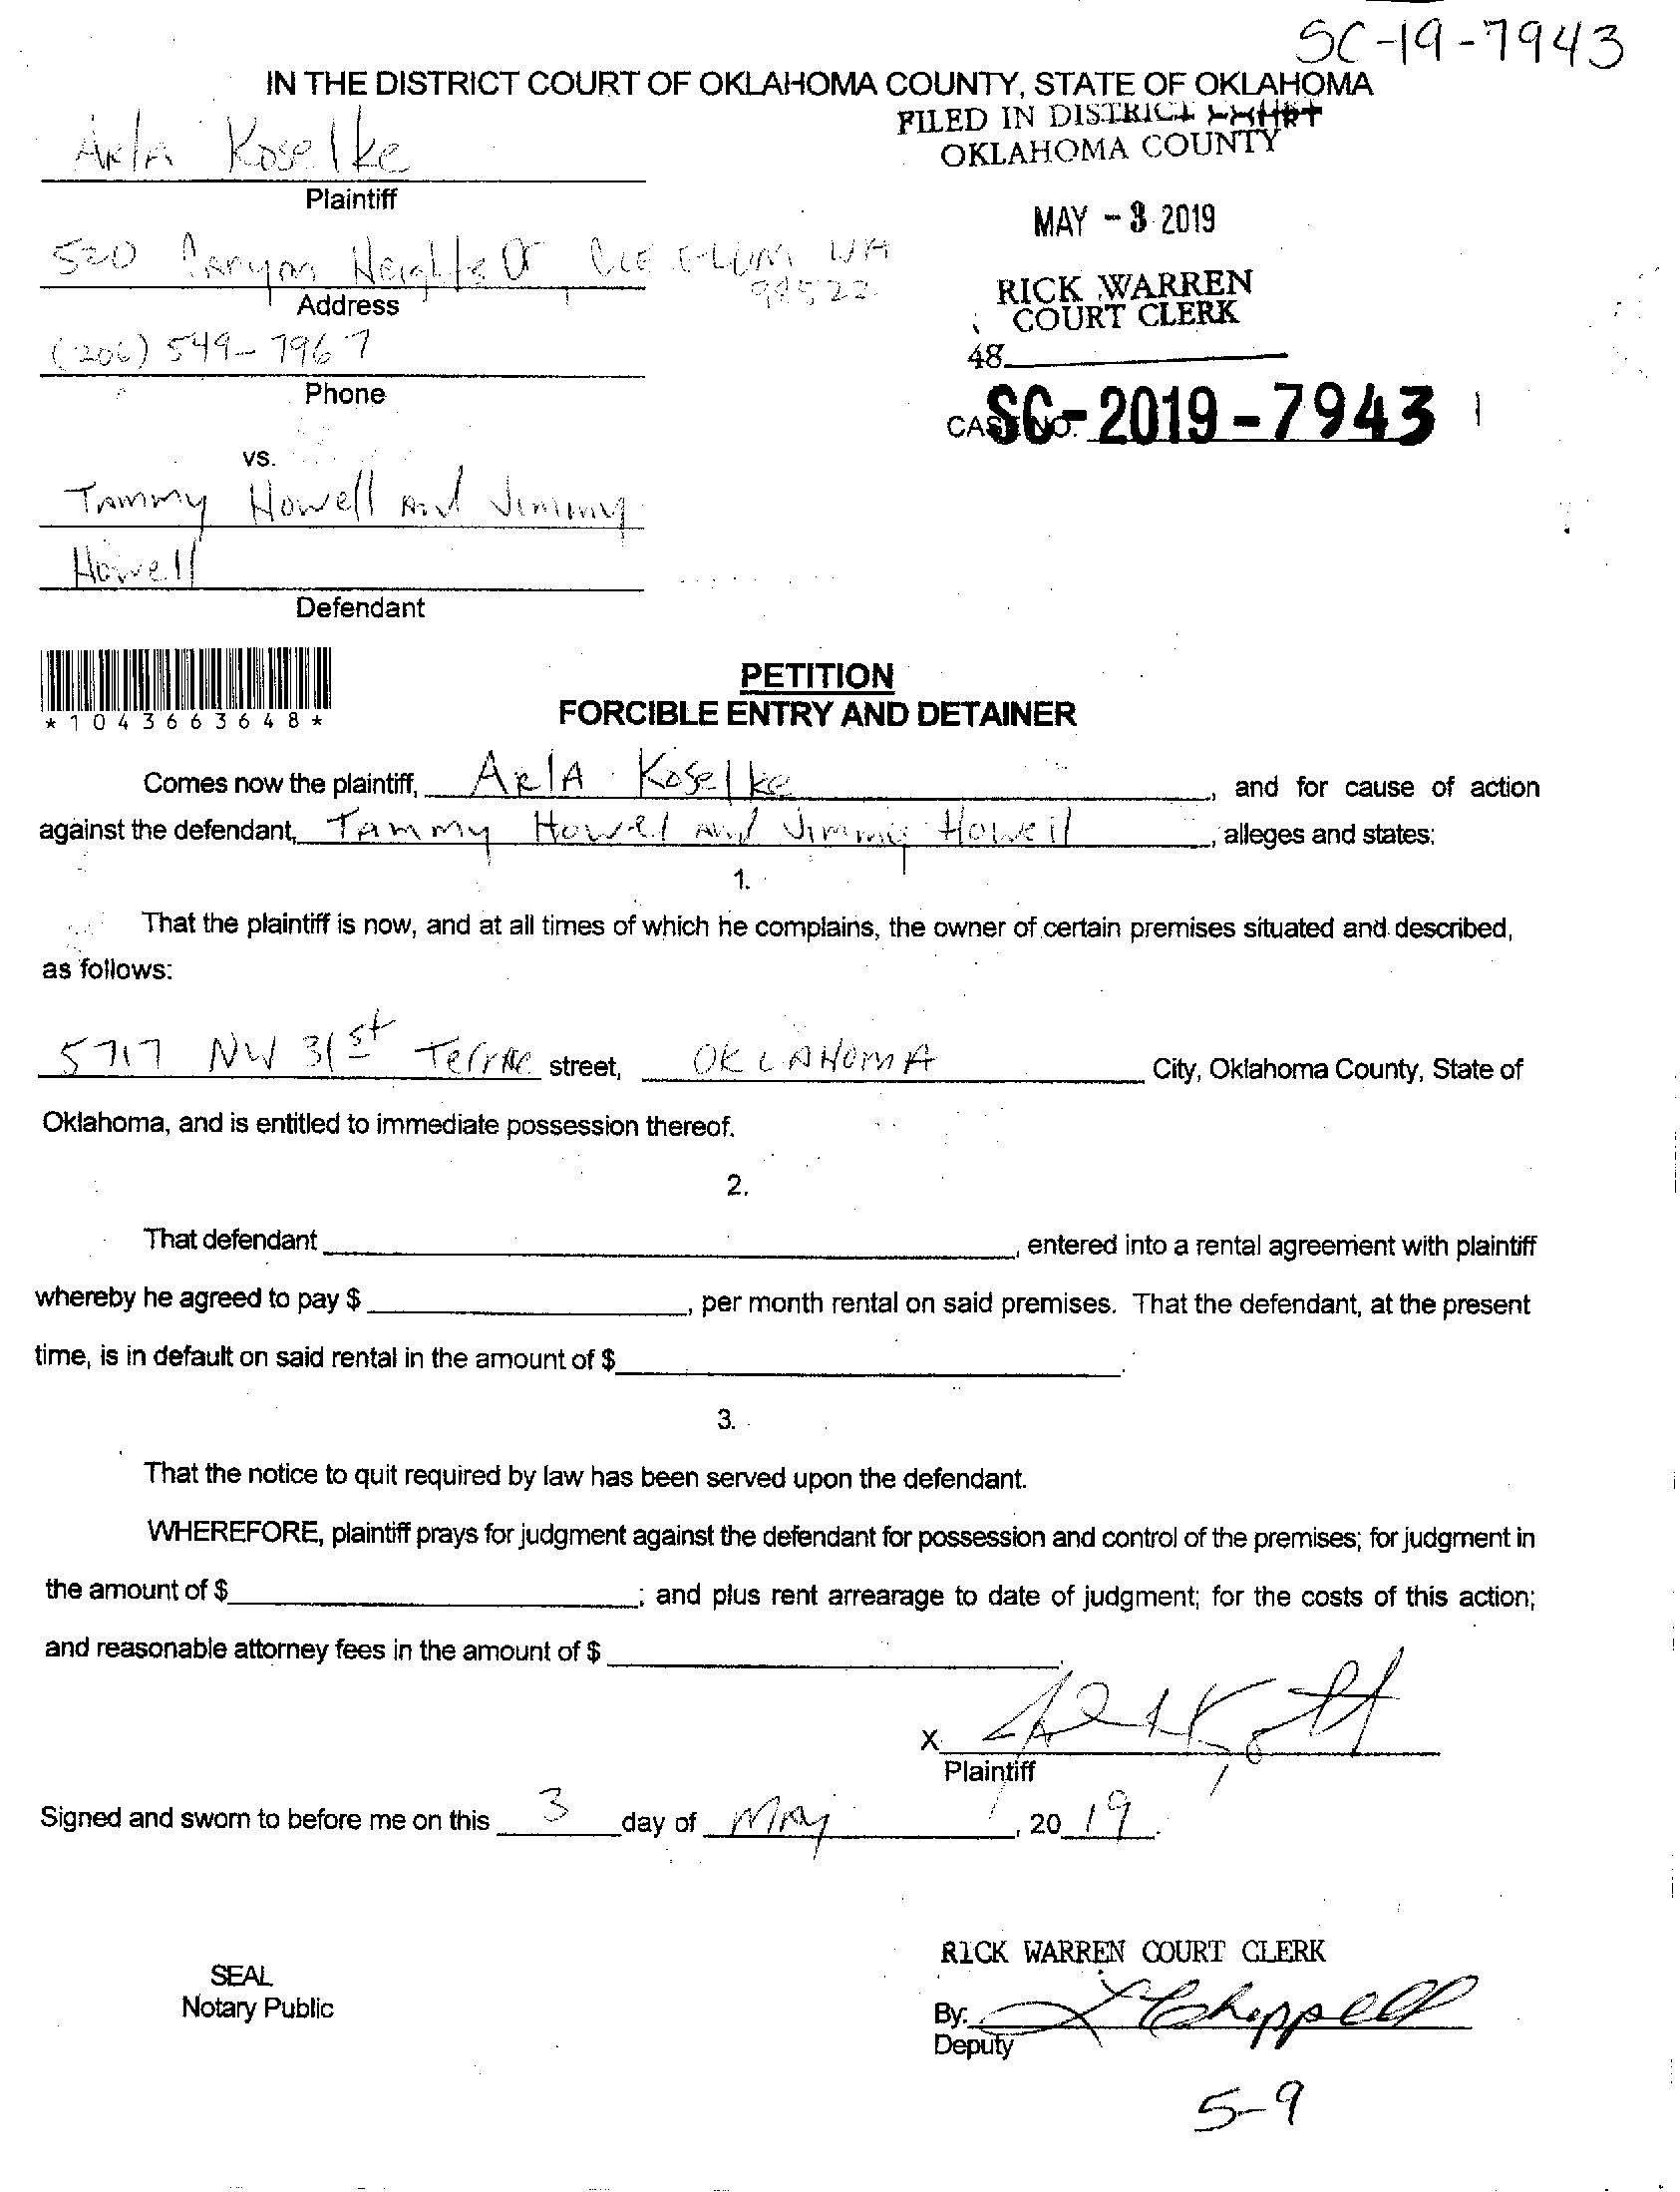 SC-19-7943
IN THE DISTRICT COURT OF OKLAHOMA COUNTY, STATE OF OKLAHOMA
FILED IN DISTRICT COURT
OKLAHOMA COUNTY
Arla Koselke
Plaintiff
MAY - 3 2019
520 Canyon Heights Dr Cle Elum WA
98522
Address
RICK WARREN
COURT CLERK
(206) 549-7967
48
Phone
CASE NO. SC-2019-7943
vs.
Tammy Howell and Jimmy
Howell
Defendant
*1043663648*
PETITION
FORCIBLE ENTRY AND DETAINER
Comes now the plaintiff, Arla Koselke, and for cause of action
against the defendant, Tammy Howell and Jimmy Howell, alleges and states:
1.
That the plaintiff is now, and at all times of which he complains, the owner of certain premises situated and described,
as follows:
5717 NW 31st Terrace street, OKLAHOMA City, Oklahoma County, State of
Oklahoma, and is entitled to immediate possession thereof.
2.
That defendant , entered into a rental agreement with plaintiff
whereby he agreed to pay $ , per month rental on said premises. That the defendant, at the present
time, is in default on said rental in the amount of $ .
3.
That the notice to quit required by law has been served upon the defendant.
WHEREFORE, plaintiff prays for judgment against the defendant for possession and control of the premises; for judgment in
the amount of $ ; and plus rent arrearage to date of judgment; for the costs of this action;
and reasonable attorney fees in the amount of $ .
X
Plaintiff
Signed and sworn to before me on this 3 day of May, 2019.
RICK WARREN COURT CLERK
SEAL
Notary Public
By: Chappell
Deputy
5-9